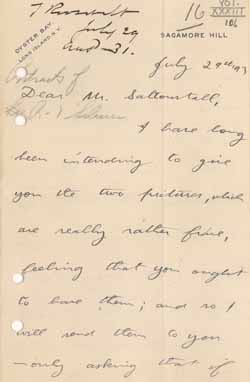 T Roosevelt
July 29
and - 31.
16
VOL.
XXXIII
106
OYSTER BAY
LONG ISLAND, N.Y.
SAGAMORE HILL
July 29th
Portraits of
Dear Mr. Saltonstall,
I have long
been intending to give
you the two pictures, which
are really rather fine,
feeling that you ought
to have them; and so I
will send them to you
— only asking that if